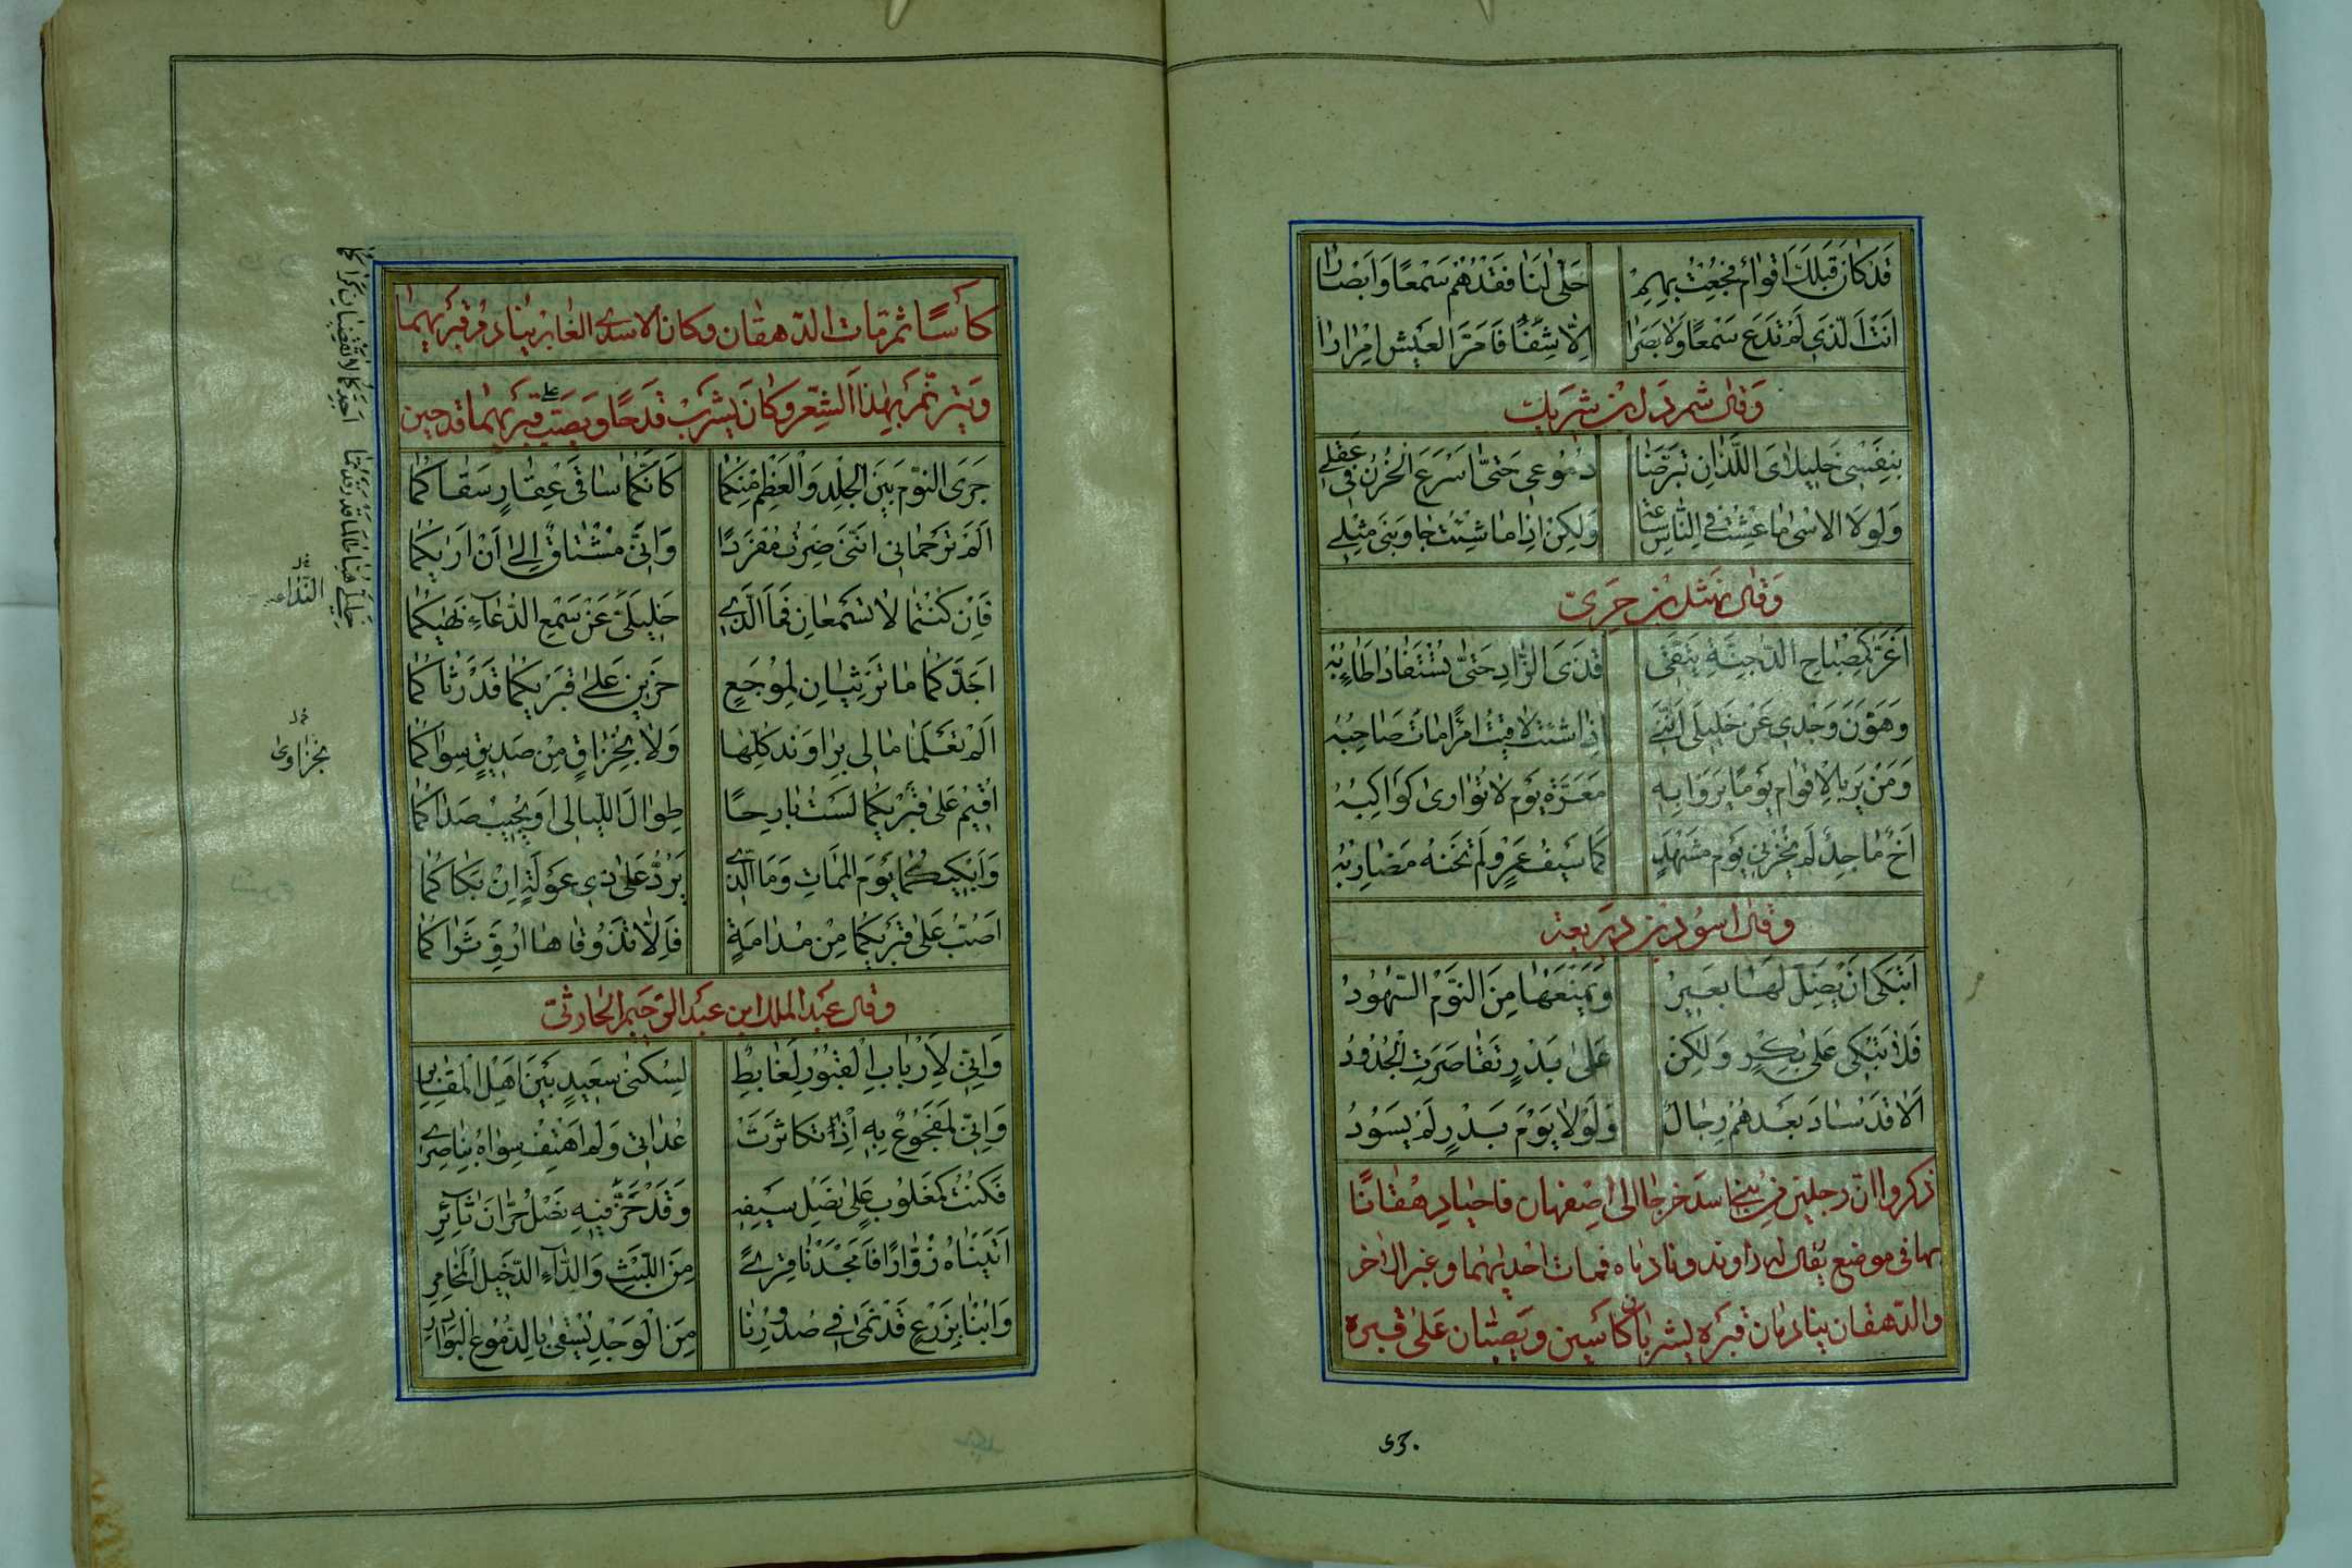 قَدْ كَانَ قَبْلَكَ اَقْوَامٌ فُجِعْتُ بِهِمْ خَلَّى لَنَا فَقْدُهُمْ سَمْعًا وَاَبْصَارًا
اَنْتَ الَّذِي لَمْ تَدَعْ سَمْعًا وَلَا بَصَرًا اِلَّا شِفًا فَاَمَرَّ العَيْشَ اِمْرَارًا
وَقَالَ شمردل بن شريك
بِنَفْسِي خَلِيلَايَ اللَّذَانِ تَبَرَّضَا دُمُوعِي حَتَّى اَسْرَعَ الحُزْنُ فِي عَقْلِي
وَلَوْلَا الاُسَى مَا عِشْتُ فِي النَّاسِ سَاعَة وَلَكِنْ اِذَا مَا شِئْتُ جَاوَبَنِي مِثْلِي
وَقَالَ نهشل بن حَرِيّ
اَغَرُّ كَمِصْبَاحِ الدُّجُنَّةِ يَتَّقِي قَذَى الزَّادِ حَتَّى تُسْتَفَادَ اَطَائِبُهْ
وَهَوَّنَ وَجْدِي عَنْ خَلِيلِي اَنَّنِي اِذَا شئْتُ لَاقَيْتُ امْرَأً مَاتَ صَاحِبُهْ
وَمَنْ يَرَ بِالاَقْوَامِ يَوْمًا يَرَوْا بِهِ مَعَرَّةَ يَوْمٍ لَا تُوَارَى كَوَاكِبُهْ
اَخٌ مَاجِدٌ لَمْ يُخْزِنِي يَوْمَ مَشْهَدٍ كَمَا سَيْفُ عَمْرٍو لَمْ تَخُنْهُ مَضَارِبُهْ
وقال اسود بن زمعة
اَتَبْكِي اَنْ يَضِلَّ لَهَا بَعِيرٌ وَيَمْنَعُهَا مِنَ النَّوْمِ السُّهُودُ
فَلَا تَبْكِي عَلَى بَكْرٍ وَلَكِنْ عَلَى بَدْرٍ تَقَاصَرَتِ الْجُدُودُ
اَلَا قَدْ سَادَ بَعْدَهُمْ رِجَالٌ وَلَوْلَا يَوْمَ بَدْرٍ لَمْ يَسُوْدُ
ذكروا انّ رجلين من بنى اسد خرجا الى اصفهان فاخيا دهقانًا
بها فى موضع يقال له راوند ونادماه فمات احدهما وغبر الاخر
والدهقان ينادمان قبره يشربان كاسين ويصبّان على قبره
.53
كأسًا ثم مات الدهقان وكان الاسدى الغابر ينادم قبريهما
وَيترنّم بهذا الشعر وكان يشرب قدحًا ويصب على قبريهما قدحين
جَرَى النَّوْمُ بَيْنَ الْجِلْدِ وَالْعَظْمِ مِنْكُمَا كَاَنَّكُمَا سَاقَى عُقَارٍ سَقَاكُمَا
اَلَمْ تَرْحَمَانِي اَنَّنِي صِرْتُ مُفْرَدًا وَاِنِّي مُشْتَاقٌ اِلَى اَنْ اَرَاكُمَا
فَاِنْ كُنْتُمَا لَا تَسْمَعَانِ فَمَا الَّذِي خَلِيلَيَّ عَنْ سَمْعِ الدُّعَاءِ نَهَاكُمَا
اَجَدَّكُمَا مَا تَرْثِيَانِ لِمُوجَعٍ حَزِينٍ عَلَى قَبْرَيْكُمَا قَدْ رَثَاكُمَا
اَلَمْ تَعْلَمَا مَا لِي بِرَاوَنْدَ كُلِّهَا وَلَا بِخُزَاقٍ مِنْ صَدِيقٍ سِوَاكُمَا
اُقِيمُ عَلَى قَبْرَيْكُمَا لَسْتُ بَارِحًا طِوَالَ اللَّيَالِي اَوْ يُجِيبَ صَدَاكُمَا
وَاَبْكِيكُمَا يَوْمَ المَمَاتِ وَمَا الَّذِي يَرُدُّ عَلَى ذِي عَوْلَةٍ اِنْ بَكَاكُمَا
اَصُبُّ عَلَى قَبْرَيْكُمَا مِنْ مُدَامَةٍ فَاِلَّا تَذُوقَاهَا اُرَوِّ ثَرَاكُمَا
وقال عبد الملك ابن عبد الرّحيم الحارثيّ
وَاِنِّي لَاَرْبَابِ الْقُبُورِ لَغَابِطٌ لِسُكْنَى سَعِيدٍ بَيْنَ اَهْلِ الْمَقَابِرِ
وَاِنِّي لَمَفْجُوعٌ بِهِ اِذْ تَكَاثَرَتْ عُدَاتِي وَلَمْ اَهْتِفْ سِوَاهُ بِنَاصِرِ
فَكُنْتُ كَمَغْلُوبٍ عَلَى نَصْلِ سَيْفِهِ وَقَدْ حَزَّ فِيهِ نَصْلُ حَرَّانَ ثَائِرِ
اَتَيْنَاهُ زُوَّارًا فَاَمْجَدَنَا قِرًى مِنَ البَثِّ وَالدَّاءِ الدَّخِيلِ الْمُخَامِرِ
وَاُبْنَا بِزَرْعٍ قَدْ نَمَى فِي صُدُورِنَا مِنَ الْوَجْدِ يُسْقَى بِالدُّمُوعِ الْبَوَادِرِ
خَلِيلَيَّ هُبَّا طَالَمَا قَدْ رَقَدْتُمَا اَجِدَّكُمَا لَا تَقْضِيَانِ كَرَاكُمَا
النداء